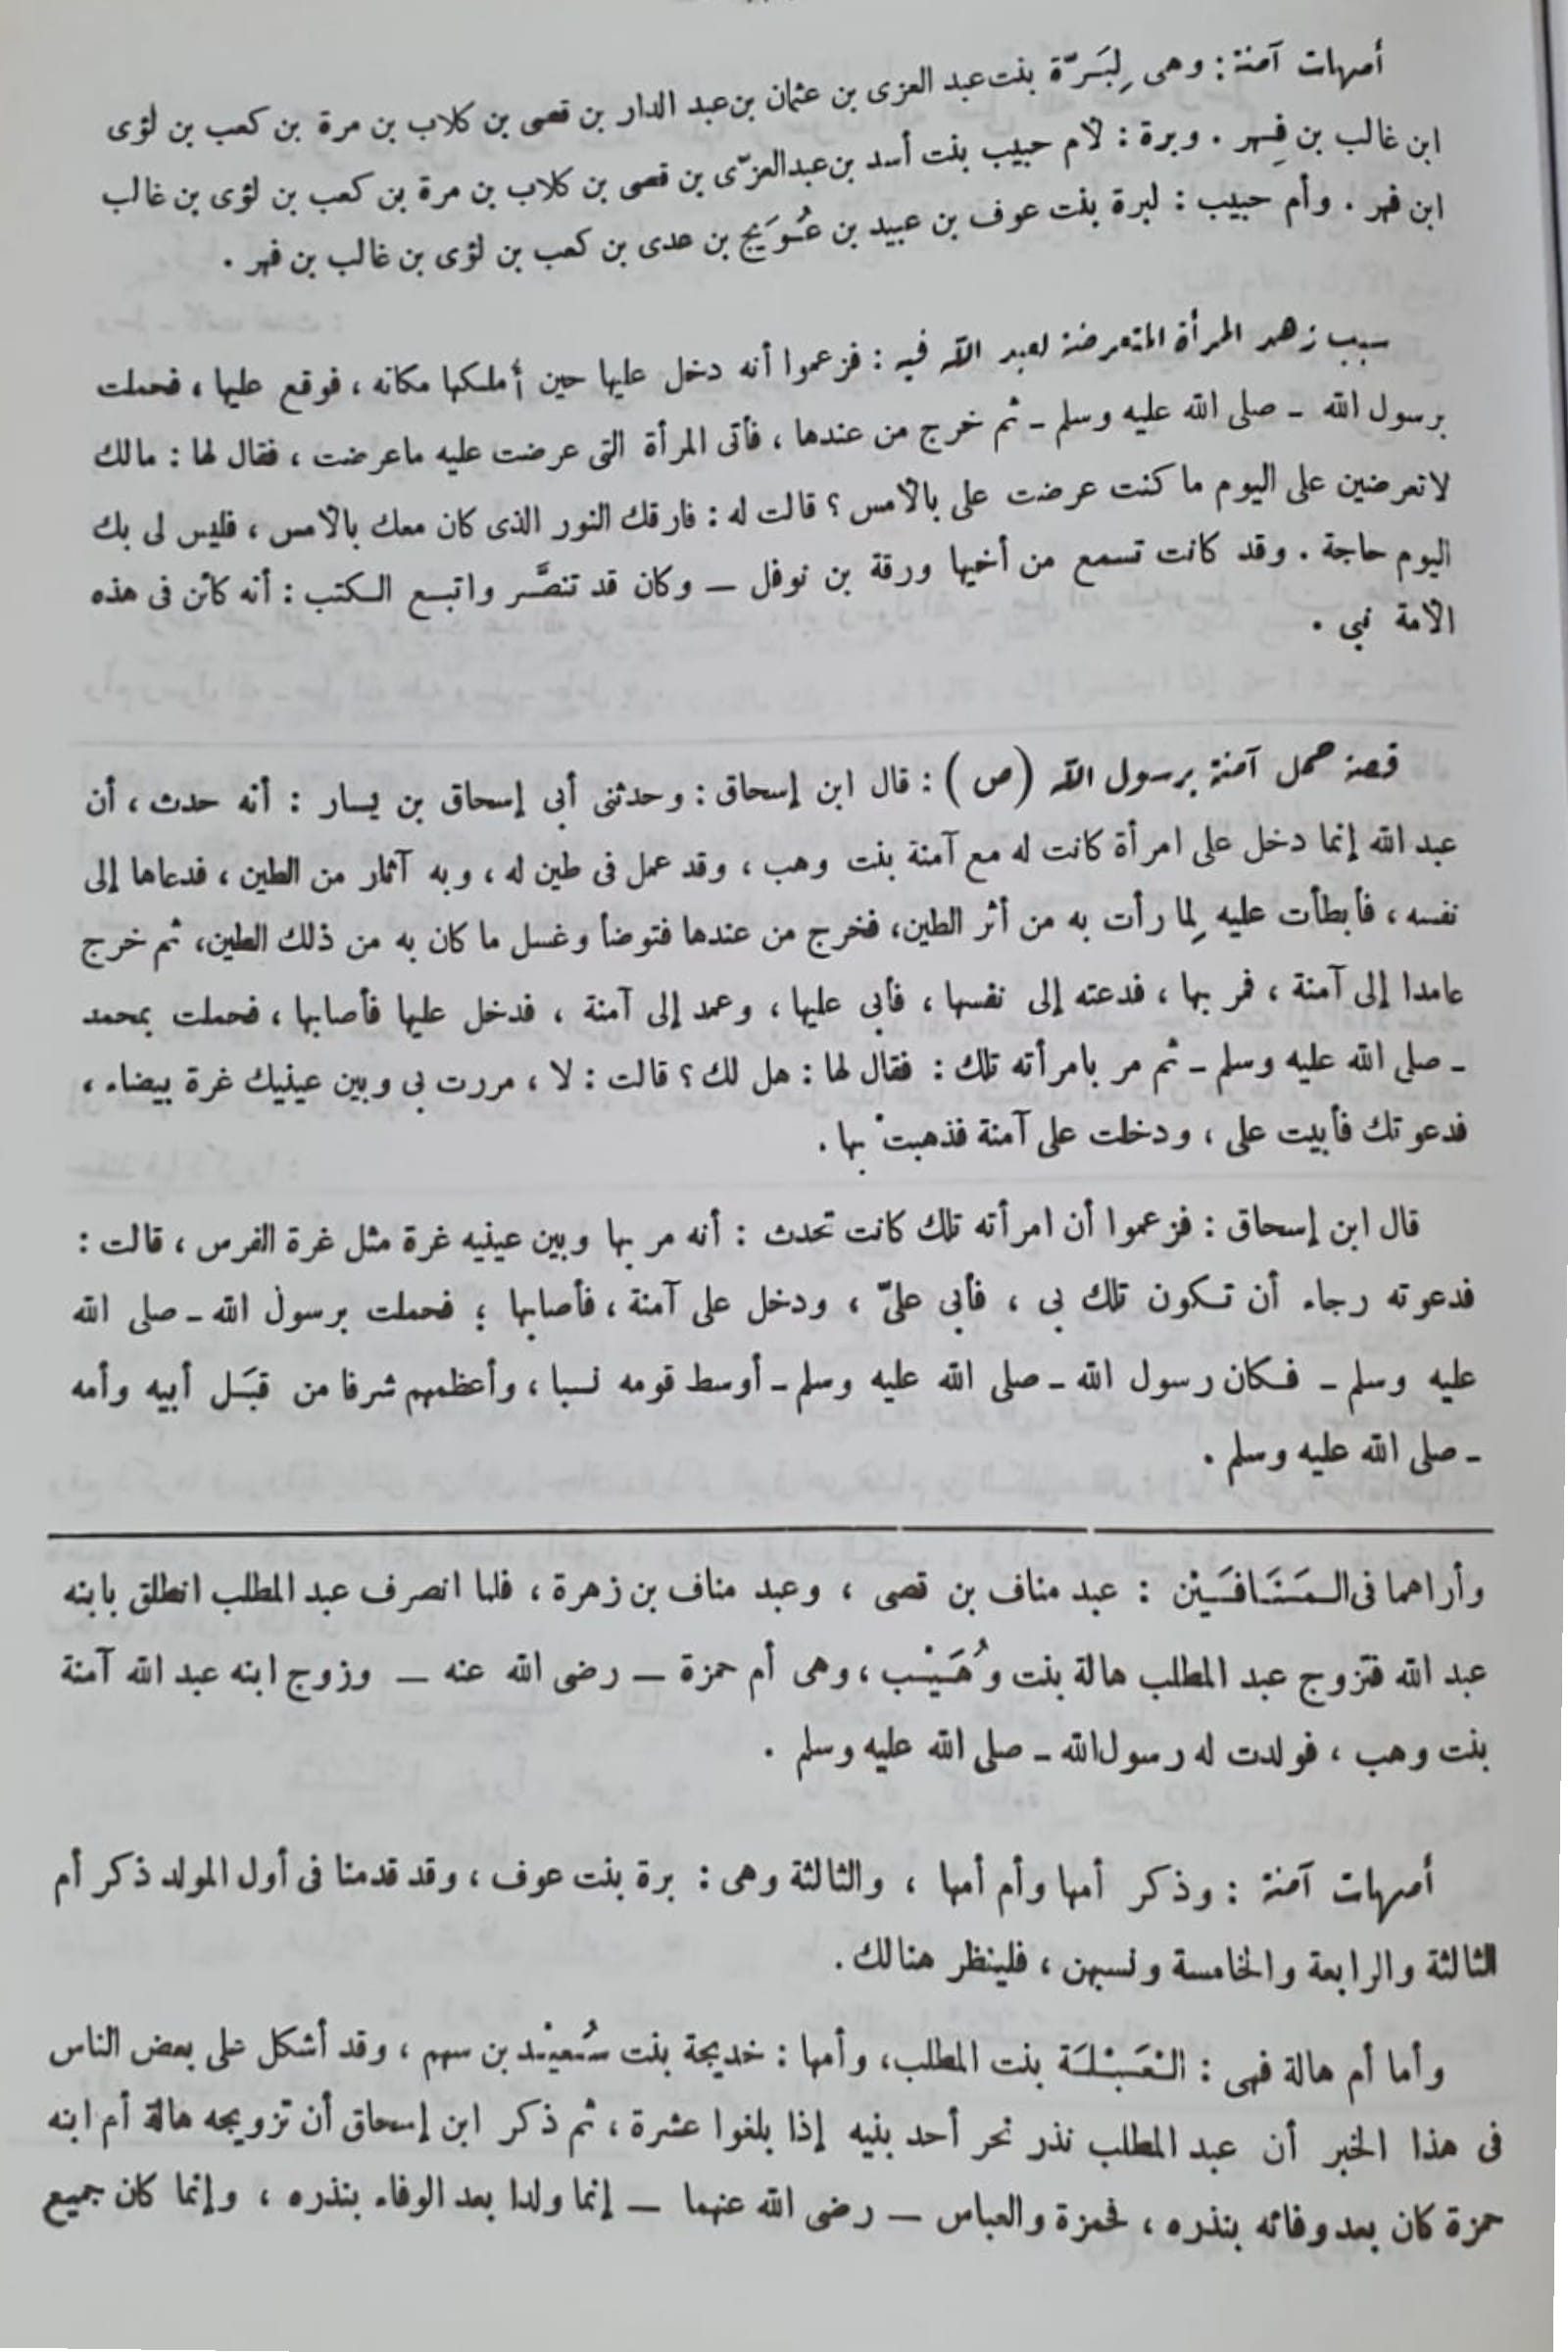 أمهات آمنة : وهى لِبَرّة بنت عبد العزى بن عثمان بن عبد الدار بن قصى بن كلاب بن مرة بن كعب بن لؤى
ابن غالب بن فِهر . وبرة : لأم حبيب بنت أسد بن عبد العزّى بن قصى بن كلاب بن مرة بن كعب بن لؤى بن غالب
ابن فهر . وأم حبيب : لبرة بنت عوف بن عبيد بن عُوَيج بن عدى بن كعب بن لؤى بن غالب بن فهر .
سبب زهد المرأة المتعرضة لعبد الله فيه : فزعموا أنه دخل عليها حين أملكها مكانه ، فوقع عليها ، فحملت
برسول الله - صلى الله عليه وسلم - ثم خرج من عندها ، فأتى المرأة التى عرضت عليه ماعرضت ، فقال لها : مالك
لاتعرضين على اليوم ما كنت عرضت على بالأمس ؟ قالت له : فارقك النور الذى كان معك بالأمس ، فليس لى بك
اليوم حاجة . وقد كانت تسمع من أخيها ورقة بن نوفل – وكان قد تنصَّر واتبع الكتب : أنه كائن فى هذه
الأمة نبى .
قصة حمل آمنة برسول الله (ص) : قال ابن إسحاق : وحدثنى أبى إسحاق بن يسار : أنه حدث ، أن
عبد الله إنما دخل على امرأة كانت له مع آمنة بنت وهب ، وقد عمل فى طين له ، وبه آثار من الطين ، فدعاها إلى
نفسه ، فأبطأت عليه لِما رأت به من أثر الطين، فخرج من عندها فتوضأ وغسل ما كان به من ذلك الطين، ثم خرج
عامدا إلى آمنة ، فمر بها ، فدعته إلى نفسها ، فأبى عليها ، وعمد إلى آمنة ، فدخل عليها فأصابها ، فحملت بمحمد
- صلى الله عليه وسلم - ثم مر بامرأته تلك : فقال لها : هل لك ؟ قالت : لا ، مررت بى وبين عينيك غرة بيضاء ،
فدعوتك فأبيت على ، ودخلت على آمنة فذهبتْ بها .
قال ابن إسحاق : فزعموا أن امرأته تلك كانت تحدث : أنه مر بها وبين عينيه غرة مثل غرة الفرس ، قالت :
فدعوته رجاء أن تكون تلك بى ، فأبى علىّ ، ودخل على آمنة ، فأصابها ؛ فحملت برسول الله - صلى الله
عليه وسلم - فكان رسول الله - صلى الله عليه وسلم - أوسط قومه نسبا ، وأعظمهم شرفا من قبَل أبيه وأمه
- صلى الله عليه وسلم .
وأراهما فى المَنَافَيْن : عبد مناف بن قصى ، وعبد مناف بن زهرة ، فلما انصرف عبد المطلب انطلق بابنه
عبد الله فتزوج عبد المطلب هالة بنت وُهَيْب ، وهى أم حمزة – رضى الله عنه – وزوج ابنه عبد الله آمنة
بنت وهب ، فولدت له رسول الله - صلى الله عليه وسلم .
أمهات آمنة : وذكر أمها وأم أمها ، والثالثة وهى : برة بنت عوف ، وقد قدمنا فى أول المولد ذكر أم
الثالثة والرابعة والخامسة ونسبهن ، فلينظر هنالك .
وأما أم هالة فهى : العَبْلَة بنت المطلب، وأمها : خديجة بنت سُعيْد بن سهم ، وقد أشكل على بعض الناس
فى هذا الخبر أن عبد المطلب نذر نحر أحد بنيه إذا بلغوا عشرة ، ثم ذكر ابن إسحاق أن تزويجه هالة أم ابنه
حمزة كان بعد وفائه بنذره ، فحمزة والعباس – رضى الله عنهما – إنما ولدا بعد الوفاء بنذره ، وإنما كان جميع